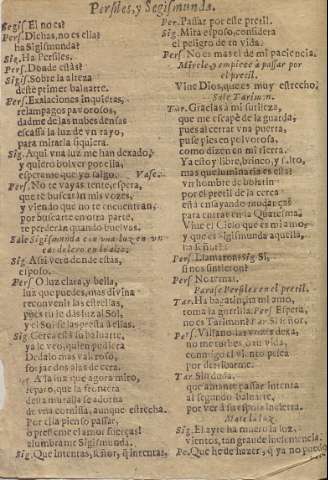 Persiles, y Segismunda.
Segis. El no es?
Pers. Dichas, no es ella?
ha Sigismunda?
Sig. Ha Persiles.
Pers. Donde estàs?
Sigis. Sobre la alteza
deste primer baluarte.
Pers. Exalaciones inquietas,
relampagos pavorosos,
dadme de las nubes densas
escassa la luz de vn rayo,
para mirarla siquiera.
Sig. Aqui vna luz me han dexado,
y quiero bolver por ella,
esperame que ya salgo. Vase.
Pers. No te vayas, tente, espera,
que te buscaràn mis vozes,
y viendo que no te encuentran,
por buscarte en otra parte,
te perderàn quando buelvas.
Sale Sigismunda con una luz en un
candelero en lo alto.
Sig. Assi verè donde estàs,
esposo.
Pers. O luz clara, y bella,
luz que puedes, mas divina
reconvenir las estrellas,
pues tu le dàs luz al Sol,
y el Sol se la presta à ellas.
Sig. Cerca està su baluarte,
ya le veo, quien pudiera
Dedalo mas valeroso,
forjar dos alas de cera.
Per. A la luz que agora miro,
reparo, que la frontera
desta muralla se adorna
de vna cornisa, aunque estrecha.
Por ella pienso passar,
o presteme el amor fuerças!
alumbrame Sigismunda.
Sig. Que intentas, señor, q̃ intentas,
Per. Passar por este pretil.
Sig. Mira esposo, considera
el peligro de tu vida.
Pers. No es mas el de mi paciencia.
Mirele, y empiece à passar por
el pretil.
Vive Dios, que es muy estrecho.
Sale Tarimon.
Tar. Gracias à mi sutileza,
que me escapè de la guarda,
pues al cerrar vna puerta,
puse pies en polvorosa,
como dizen en mi tierra.
Ya estoy libre, brinco, y salto,
mas que luminaria es esta?
vn hombre de bolatin
por el pretil de la cerca
està ensayando mudanças
para entrar en la Quaresma.
Vive el Cielo que es mi amo,
y que es Sigismunda aquella,
ha señor?
Pers. Llamaronte? Sig. Si,
si nos sintieron?
Pers. No temas.
Parase Persiles en el pretil.
Tar. Ha
toma la Pers. Espera,
no es Tarimon? Tar. Si señor,
Pers. Valfano las vozes dexa,
no me turbes, o tu vida,
conmigo el viento pelea
por derribarme.
Tar. Sin duda,
que amante passar intenta
al segundo baluarte,
por ver à su esposa incierta.
Mate la luz.
Sig. El ayre ha muerto la luz,
vientos, tan grande inclemencia.
Pe. Que he de hazer, q̃ ya no puedo